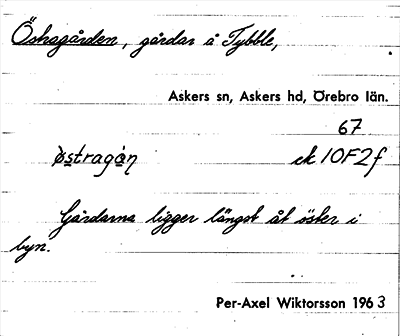 Östragården, gårdar å Tybble,
Askers sn, Askers hd, Örebro län.
67
östragån ek 10F2f
Gårdarna ligger längst åt öster i
byn.
Per-Axel Wiktorsson 1963